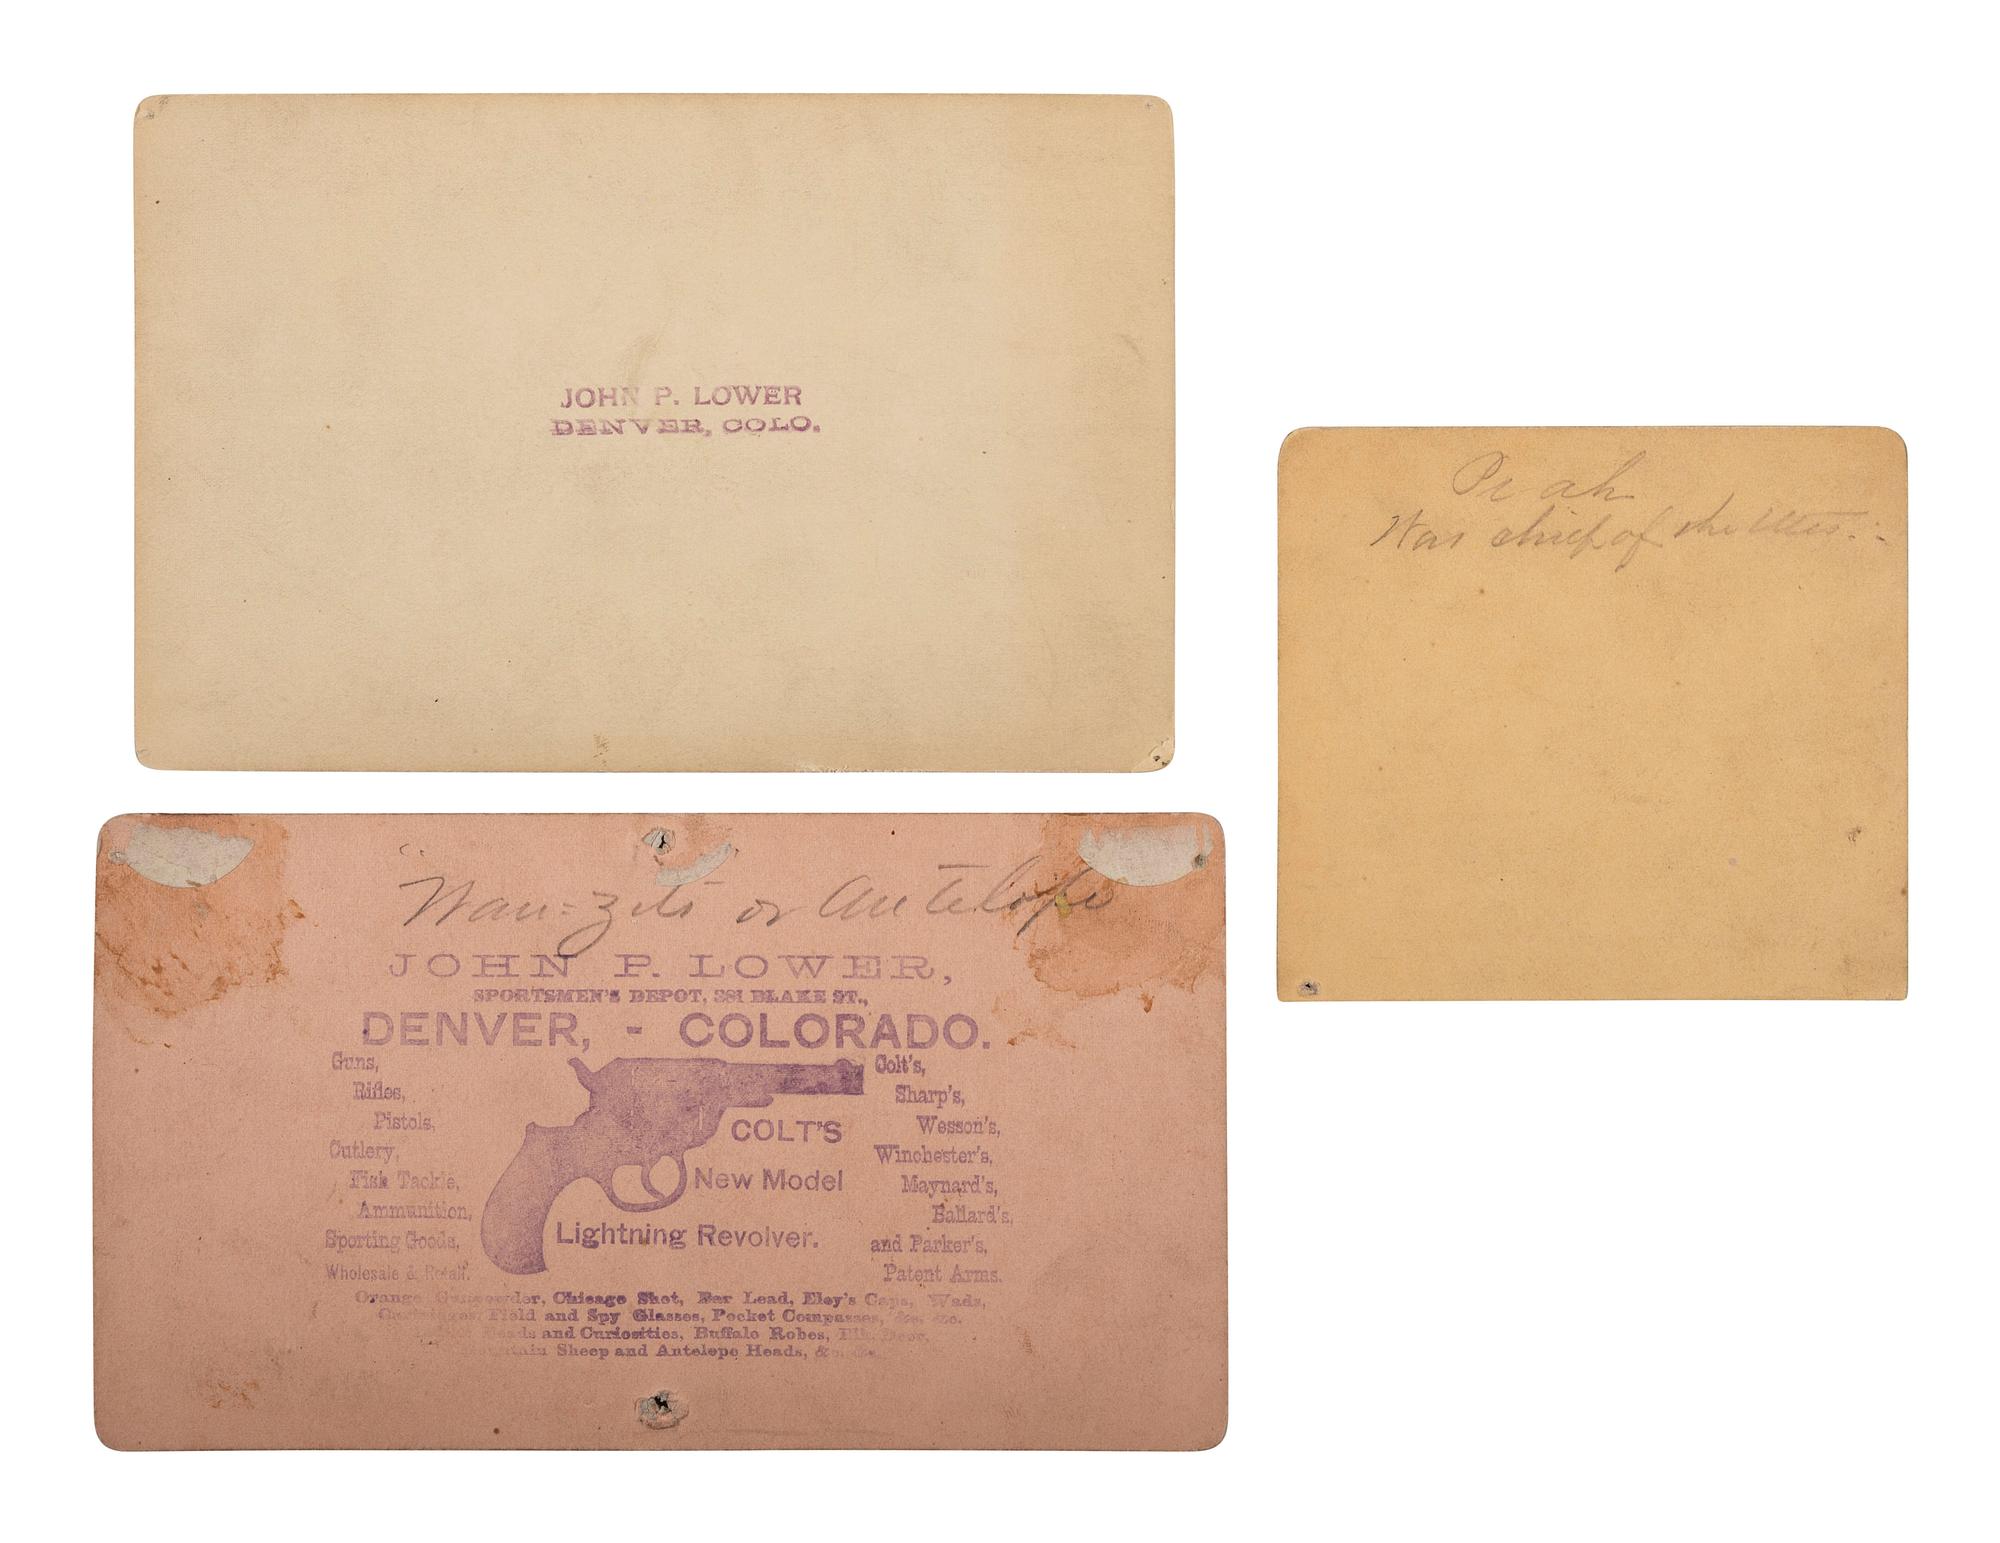 JOHN P. LOWER
DENVER, COLO.
Pe ah
Was chief of the Utes.
Wan=zits or Antelope
JOHN P. LOWER,
SPORTSMEN'S DEPOT, 381 BLAKE ST.,
DENVER, - COLORADO.
Guns,
Rifles,
Pistols,
Cutlery,
Fish Tackle,
Ammunition,
Sporting Goods,
Wholesale & Retail.
COLT'S
New Model
Lightning Revolver.
Colt's,
Sharp's,
Wesson's,
Winchester's,
Maynard's,
Ballard's,
and Parker's,
Patent Arms.
Orange Gunpowder, Chicago Shot, Bar Lead, Eley's Caps, Wads,
Cartridges, Field and Spy Glasses, Pocket Compasses, &c. &c.
Heads and Curiosities, Buffalo Robes, Elk, Deer,
Mountain Sheep and Antelope Heads, &c. &c.